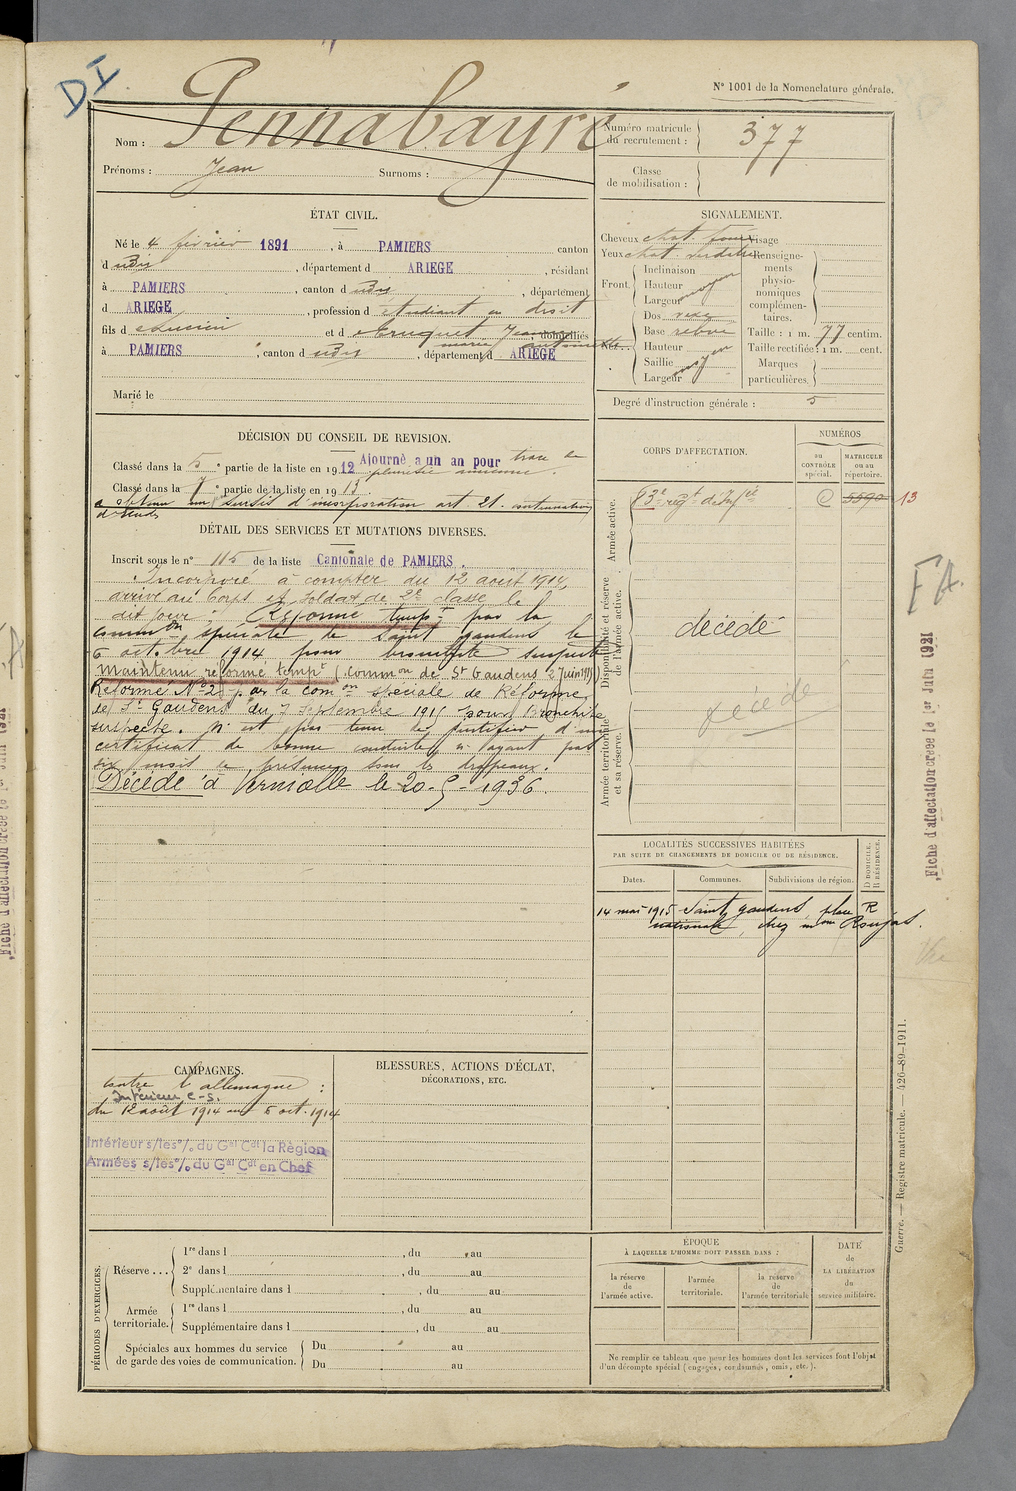 DI
N° 1001 de la Nomenclature générale.
Nom : Pennabayré
Prénoms : Jean Surnoms :
Numéro matricule du recrutement : 377
Classe de mobilisation :
ÉTAT CIVIL.
Né le 4 février 1891, à PAMIERS canton
d udis, département d ARIEGE, résidant
à PAMIERS, canton d udis, département
d ARIEGE, profession d étudiant en droit
fils d Lucien et d Cruquet Jeanne, domiciliés
marie antoinette
à PAMIERS, canton d udis, département d ARIEGE
Marié le
SIGNALEMENT.
Cheveux chat foncé Visage
Yeux chat. verdâtre Renseignements physionomiques complémentaires.
Front. Inclinaison
Hauteur moyen
Largeur
Nez. Dos rexe
Base relevé
Hauteur moyen
Saillie
Largeur
Taille : 1 m. 77 centim.
Taille rectifiée : 1 m. cent.
Marques particulières.
Degré d'instruction générale : 5
DÉCISION DU CONSEIL DE REVISION.
Classé dans la 5e partie de la liste en 1912 Ajourné a un an pour trace de
pleurésie ancienne.
Classé dans la 1e partie de la liste en 1913.
a obtenu un sursis d'incorporation art 21. continuation
d'études
DÉTAIL DES SERVICES ET MUTATIONS DIVERSES.
Inscrit sous le n° 115 de la liste Cantonale de PAMIERS.
Incorporé à compter du 12 août 1914,
arrivé au Corps et soldat de 2e classe le
dit jour. Réformé tempt par la
common spéciale de Saint Gaudens le
6 octobre 1914 pour bronchite suspecte
Maintenu réformé tempt (Common de St Gaudens 2 Juin 1915).
Réformé N°2 par la común spéciale de Réforme
de St Gaudens du 7 Septembre 1915 pour Bronchite
suspecte. N'est pas tenu de justifier d'un
certificat de bonne conduite n'ayant pas
six mois de présence sous les drapeaux.
Décédé à Verniolle le 20-5-1936.
CORPS D'AFFECTATION.
NUMÉROS
au CONTRÔLE spécial.
MATRICULE ou au répertoire.
Armée active.
83e regt d'Infie
C 5590 13
Disponibilité et réserve de l'armée active.
décédé
Armée territoriale et sa réserve.
décédé
FA.
"Fiche d'affectation créée le 1er Juin 1921
LOCALITÉS SUCCESSIVES HABITÉES
PAR SUITE DE CHANGEMENTS DE DOMICILE OU DE RÉSIDENCE.
Dates. Communes. Subdivisions de région. D DOMICILE. R RÉSIDENCE.
14 mai 1915 Saint gaudens, place R
nationale, chez mme Roujas.
CAMPAGNES.
Contre l'allemagne :
Intérieur C-S.
du 12 août 1914 au 6 oct. 1914
Intérieur s/les o/. du Gal Cdt la Région
Armées s/les o/. du Gal Cdt en Chef
BLESSURES, ACTIONS D'ÉCLAT,
DÉCORATIONS, ETC.
PÉRIODES D'EXERCICES.
Réserve ... 1re dans l , du au
2e dans l , du au
Supplémentaire dans l , du au
Armée territoriale. 1re dans l , du au
Supplémentaire dans l , du au
Spéciales aux hommes du service de garde des voies de communication. Du au
Du au
ÉPOQUE
À LAQUELLE L'HOMME DOIT PASSER DANS :
la réserve de l'armée active.
l'armée territoriale.
la réserve de l'armée territoriale
DATE de LA LIBÉRATION du service militaire.
Ne remplir ce tableau que pour les hommes dont les services font l'objet
d'un décompte spécial (engagés, condamnés, omis, etc.).
Guerre. — Registre matricule. — 426-89-1911.